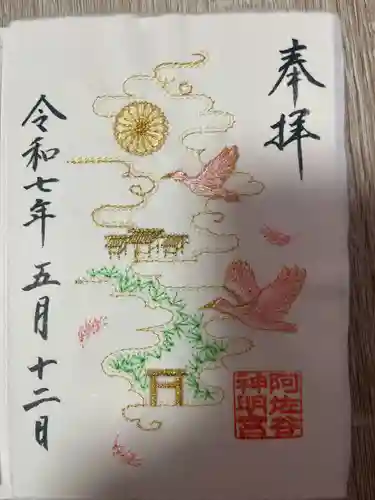 奉拝
阿佐谷
神明宮
令和七年 五月 十二日